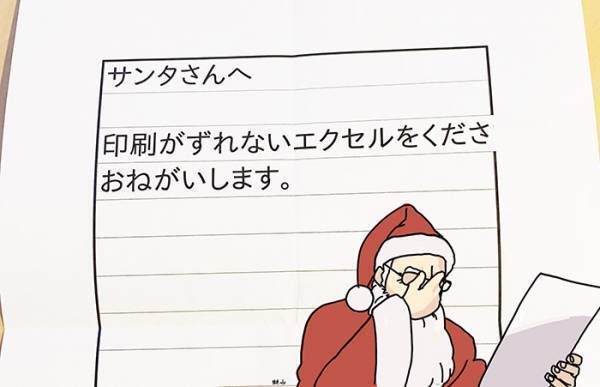 サンタさんへ
印刷がずれないエクセルをくださ
おねがいします。